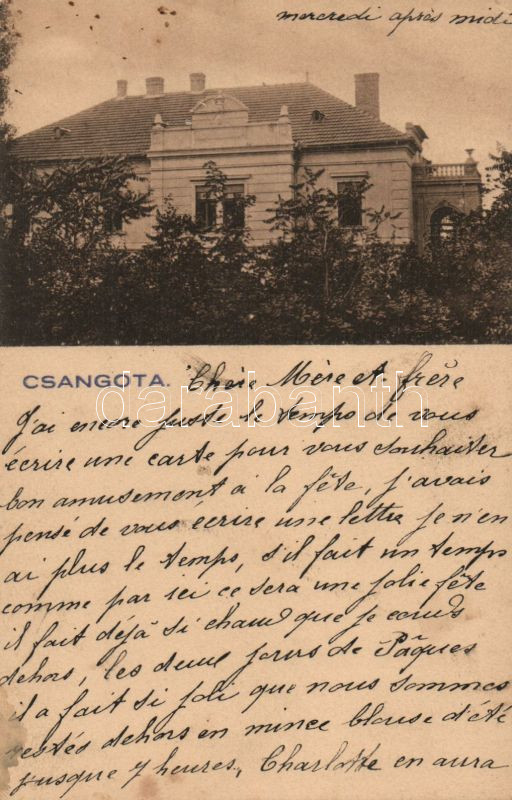 mercredi après midi
CSANGOTA.
Chère Mère et frère
J'ai encore juste le temps de vous
écrire une carte pour vous souhaiter
bon amusement à la fête, j'avais
pensé de vous écrire une lettre je n'en
ai plus le temps, s'il fait un temps
comme par ici ce sera une jolie fête
il fait déjà si chaud que je couds
dehors, les deux jours de Pâques
il a fait si joli que nous sommes
restés dehors en mince blouse d'été
jusque 7 heures, Charlotte en aura
darabanth